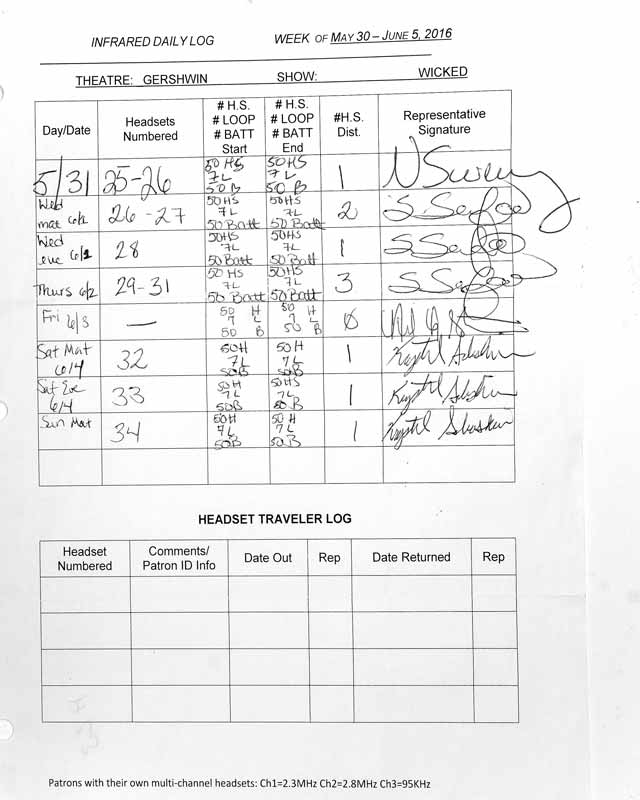 INFRARED DAILY LOG WEEK OF MAY 30 – JUNE 5, 2016
THEATRE: GERSHWIN SHOW: WICKED
Day/Date
Headsets
Numbered
# H.S.
# LOOP
# BATT
Start
# H.S.
# LOOP
# BATT
End
#H.S.
Dist.
Representative
Signature
5/31 25-26
50 HS
7L
50 B
50 HS
7L
50 B
1
Wed
mat 6/1
26-27
50HS
7L
50 Batt
50HS
7L
50 Batt
2
Wed
eve 6/1
28
50HS
7L
50 Batt
50HS
7L
50 Batt
1
Thurs 6/2
29-31
50 HS
7L
50 Batt
50HS
7L
50 Batt
3
Fri 6/3
—
50 H
7 L
50 B
50 H
7 L
50 B
0
Sat Mat
6/4
32
50H
7L
50B
50 H
7L
50 B
1
Sat Eve
6/4
33
50H
7L
50B
50HS
7L
50 B
1
Sun Mat
34
50H
7L
50B
50 H
7L
50B
1
HEADSET TRAVELER LOG
Headset
Numbered
Comments/
Patron ID Info
Date Out
Rep
Date Returned
Rep
Patrons with their own multi-channel headsets: Ch1=2.3MHz Ch2=2.8MHz Ch3=95KHz